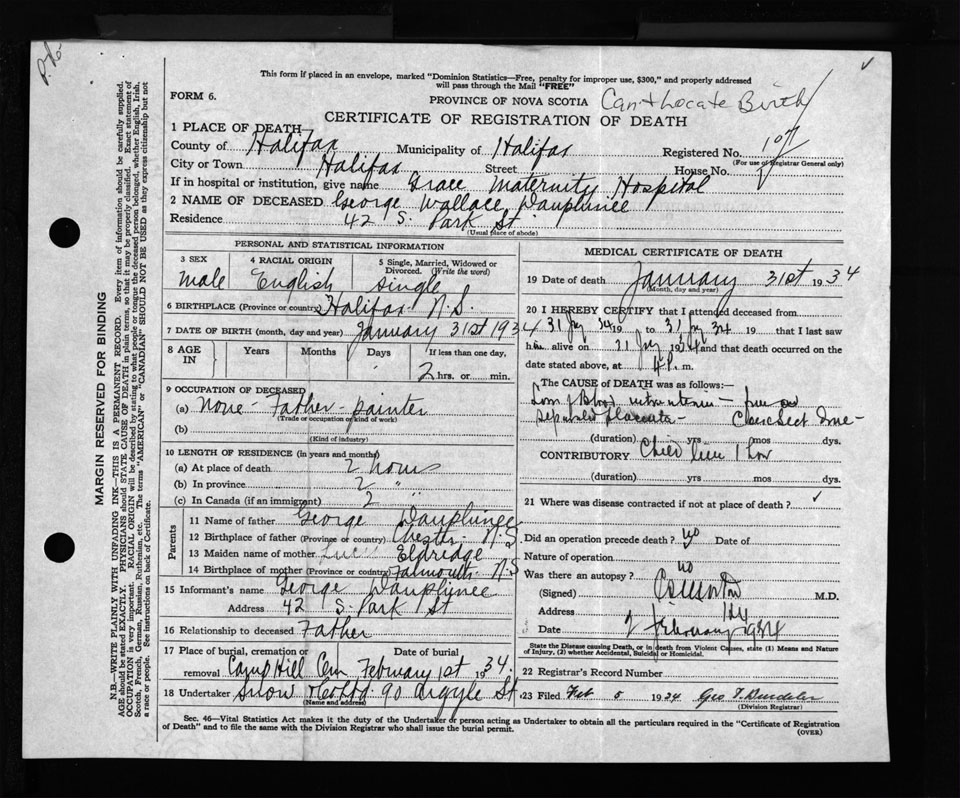 This form if placed in an envelope, marked "Dominion Statistics—Free, penalty for improper use, $300," and properly addressed
will pass through the Mail "FREE"
FORM 6.
PROVINCE OF NOVA SCOTIA Can't Locate Birth
CERTIFICATE OF REGISTRATION OF DEATH
1 PLACE OF DEATH—
County of Halifax Municipality of Halifax Registered No. 107
(For use of Registrar General only)
City or Town Halifax Street House No.
If in hospital or institution, give name Grace Maternity Hospital
2 NAME OF DECEASED George Wallace Dauphinee
Residence 42 S. Park St
(Usual place of abode)
PERSONAL AND STATISTICAL INFORMATION
3 SEX 4 RACIAL ORIGIN 5 Single, Married, Widowed or Divorced. (Write the word)
male English single
6 BIRTHPLACE (Province or country) Halifax N.S.
7 DATE OF BIRTH (month, day and year) January 31st 1934
8 AGE IN Years Months Days If less than one day,
2 hrs. or min.
9 OCCUPATION OF DECEASED
(a) None - Father - painter
(Trade or occupation or kind of work)
(b)
(Kind of industry)
10 LENGTH OF RESIDENCE (in years and months)
(a) At place of death 2 hours
(b) In province 2 "
(c) In Canada (if an immigrant) 2 "
Parents
11 Name of father George Dauphinee
12 Birthplace of father (Province or country) Chester N.S
13 Maiden name of mother Eldridge
14 Birthplace of mother (Province or country) Falmouth N.S
15 Informant's name George Dauphinee
Address 42 S. Park St
16 Relationship to deceased Father
17 Place of burial, cremation or removal Date of burial
Camp Hill Cem February 1st 1934.
18 Undertaker Snow & Co Ltd 90 Argyle St
(Name and address)
MEDICAL CERTIFICATE OF DEATH
19 Date of death January 31st 1934
(Month, day and year)
20 I HEREBY CERTIFY that I attended deceased from
31 Jy 34 19 to 31 Jy 34 19 that I last saw
him alive on 31 Jy 1934 and that death occurred on the
date stated above, at P. m.
The CAUSE of DEATH was as follows:—
Loss of Blood
separated placenta -
(duration) yrs mos dys.
CONTRIBUTORY Child live 1 hour
(duration) yrs mos dys.
21 Where was disease contracted if not at place of death? ✓
Did an operation precede death? no Date of
Nature of operation
Was there an autopsy? no
(Signed) M.D.
Address
Date 2 February 1934
State the Disease causing Death, or in death from Violent Causes, state (1) Means and Nature
of Injury, (2) whether Accidental, Suicidal or Homicidal.
22 Registrar's Record No.
23 Filed Feb 5 1934 Geo T.
(Division Registrar)
Sec. 46—Vital Statistics Act makes it the duty of the Undertaker or person acting as Undertaker to obtain all the particulars required in the "Certificate of Registration
of Death" and to file the same with the Division Registrar who shall issue the burial permit.
(OVER)
MARGIN RESERVED FOR BINDING
N.B.—WRITE PLAINLY WITH UNFADING INK—THIS IS A PERMANENT RECORD. Every item of information should be carefully supplied.
AGE should be stated EXACTLY. PHYSICIANS should STATE CAUSE OF DEATH in plain terms, so that it may be properly classified. Exact statement of
OCCUPATION is very important. RACIAL ORIGIN will be described by stating to what people or tongue the deceased person belonged, whether English, Irish,
Scotch, French, German, Russian, Ruthenian, etc. The terms "AMERICAN" or "CANADIAN" SHOULD NOT BE USED as they express citizenship but not
a race or people. See instructions on back of Certificate.